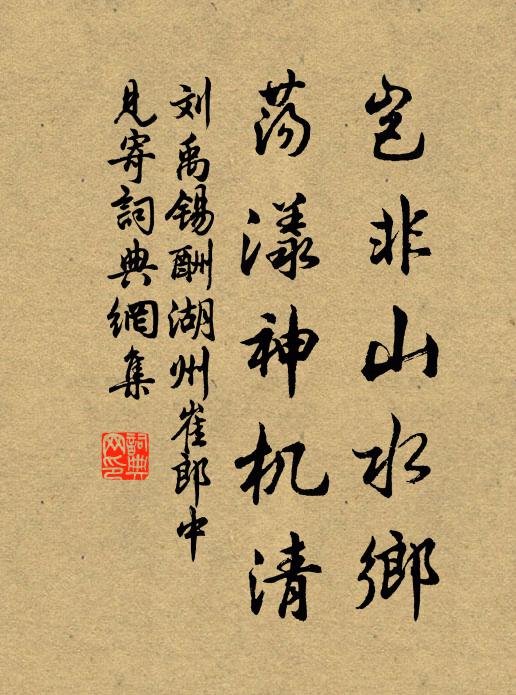 岂非山水鄉
荡漾神机清
刘禹锡酬湖州崔郎中
見寄詞典網集
詞典网印